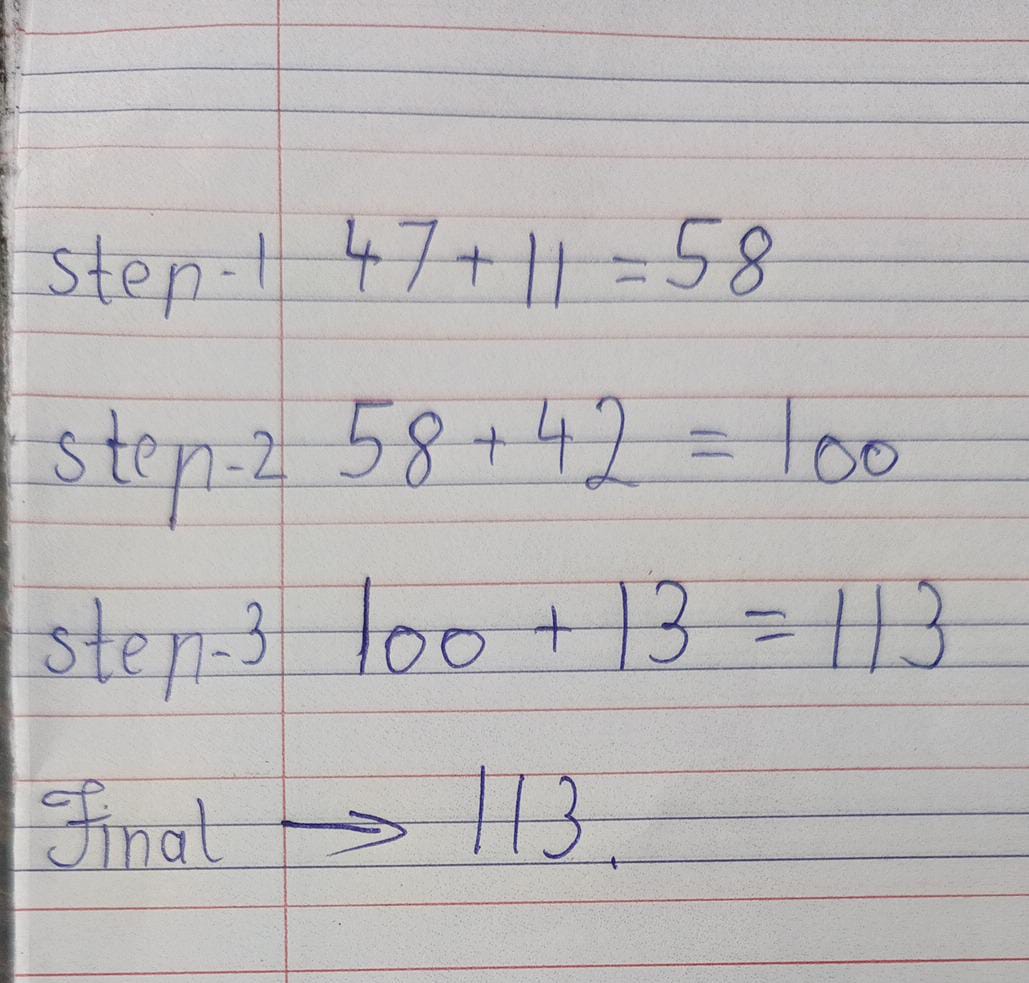 step-1 47+11=58
step-2 58+42 = 100
step-3 100 + 13 = 113
Final → 113.